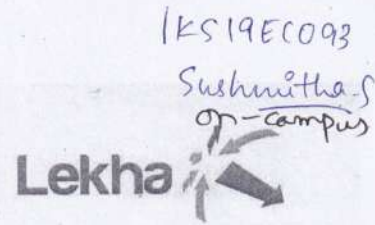 1KS19EC093
Sushmitha.S
on-campus
Lekha